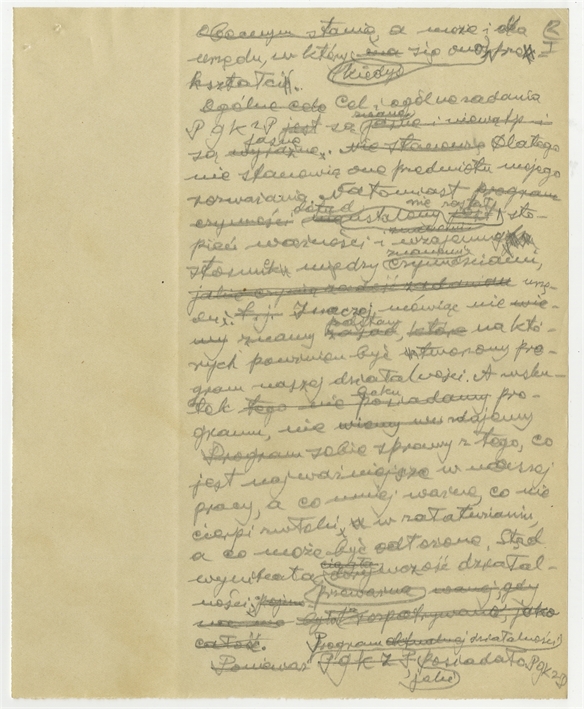 obecnym stanie a może i dla
urzędu, w który ma się ono prze-
kształcić. kiedyś
Ogólne cele Cel i ogólne zadania
P g k z P jest są jasne i niewątpli
są wyraźne. jasne Nie stanowią Dlatego
nie stanowią one przedmiotu mojego
rozważania. Natomiast program
czynności dotąd nie został sto-
pień ważności i wzajemny
stosunek między czynnościami,
urzę-
du. t.j. Inaczej mówiąc nie wie-
my znamy podstaw zasad, które na któ-
rych powinien być stworzony pro-
gram naszej działalności. A wsku-
tek tego nie braku posiadamy pro-
gramu, nie wiemy nie zdajemy
Program sobie sprawy z tego, co
jest najważniejsze w naszej
pracy, a co mniej ważne, co nie
cierpi zwłoki w załatwianiu,
a co może być odłożone. Stąd
wynikała ciągła działal-
ności
rozpatrywano jako
całość. Program działalności
Ponieważ P g k z P posiadało P g k z P
jakie